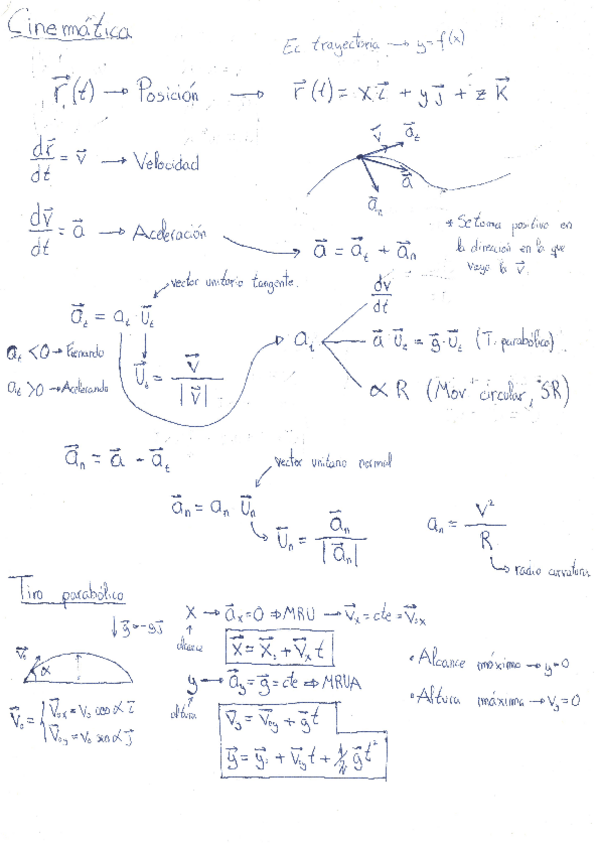 Cinemática
Ec trayectoria → y=f(x)
r⃗(t) → Posición → r⃗(t) = x i⃗ + y j⃗ + z k⃗
dr⃗/dt = v⃗ → Velocidad
v⃗ a⃗t a⃗ a⃗n
dv⃗/dt = a⃗ → Aceleración → a⃗ = a⃗t + a⃗n
* Se toma positivo en
la dirección en la que
vaya la v⃗.
vector unitario tangente.
a⃗t = at · u⃗t
at <0 → Frenando
at >0 → Acelerando
u⃗t = v⃗/|v⃗|
at
dv/dt
a⃗·u⃗t = g⃗·u⃗t (T. parabólico)
αR (Mov circular, SR)
a⃗n = a⃗ - a⃗t
vector unitario normal
a⃗n = an u⃗n
u⃗n = a⃗n/|a⃗n|
an = v²/R
radio curvatura
Tiro parabólico
g⃗=-gj⃗
v⃗0 α
v⃗0 = { v⃗0x = v0 cos α i⃗
v⃗0y = v0 sen α j⃗
x → a⃗x=0 ⇒ MRU → v⃗x = cte = v⃗0x
alcance
x⃗ = x⃗0 + v⃗x t
y → a⃗y = g⃗ = cte ⇒ MRUA
altura
v⃗y = v⃗0y + g⃗t
y⃗ = y⃗0 + v⃗0y t + 1/2 g⃗t²
• Alcance máximo → y=0
• Altura máxima → vy=0